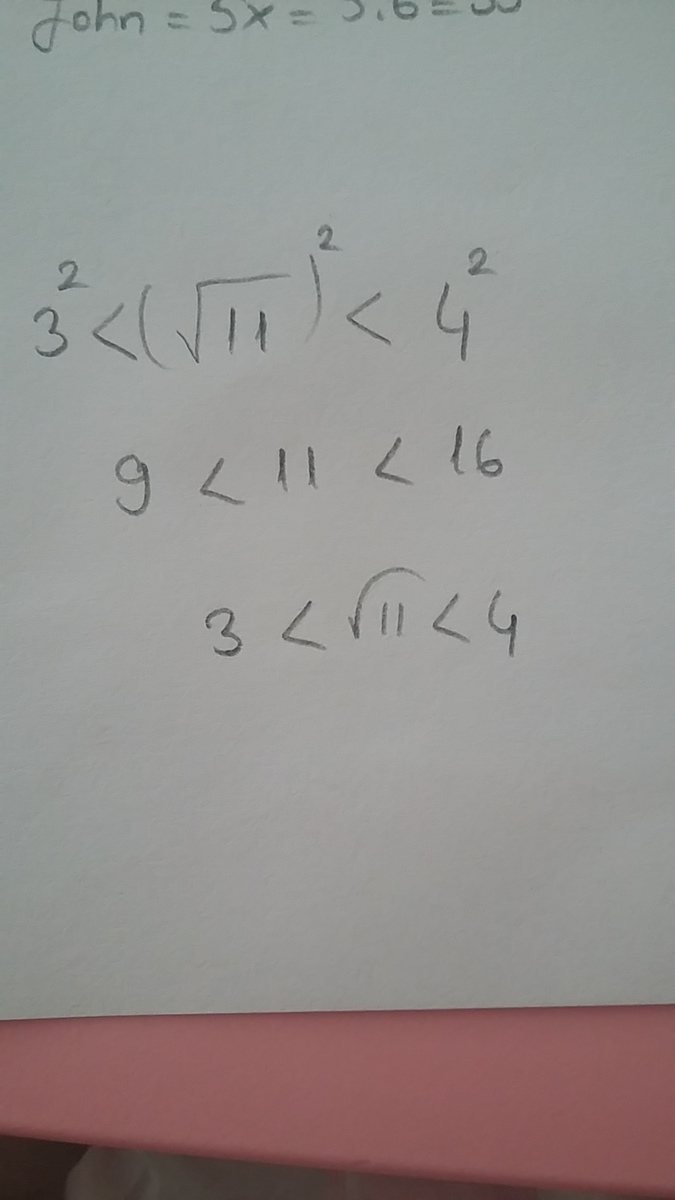 John = 5x = 5.6 =
3² < (√11)² < 4²
9 < 11 < 16
3 < √11 < 4